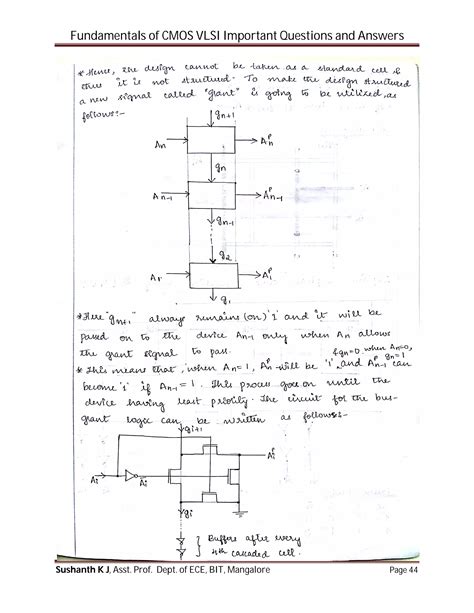 Fundamentals of CMOS VLSI Important Questions and Answers
* Hence, the design cannot be taken as a standard cell &
thus it is not structured. To make the design structured
a new signal called "grant" is going to be utilized as
follows:-
gn+1
An
Aᵖn
gn
An-1
Aᵖn-1
gn-1
g2
A1
Aᵖ1
g1
* Here "gn+1" always remains (on) '1' and it will be
passed on to the device An-1 only when An allows
the grant signal to pass.
& gn=0. when An=0, gn=1
* This means that, when An=1, Aᵖn will be '1' and Aᵖn-1 can
become '1' if An-1=1. This process goes on until the
device having least priority. The circuit for the bus-
grant logic can be written as follows:-
gi+1
Ai
Ai
Aᵖi
gi
Buffers after every
4th cascaded cell.
Sushanth K J, Asst. Prof. Dept. of ECE, BIT, Mangalore
Page 44